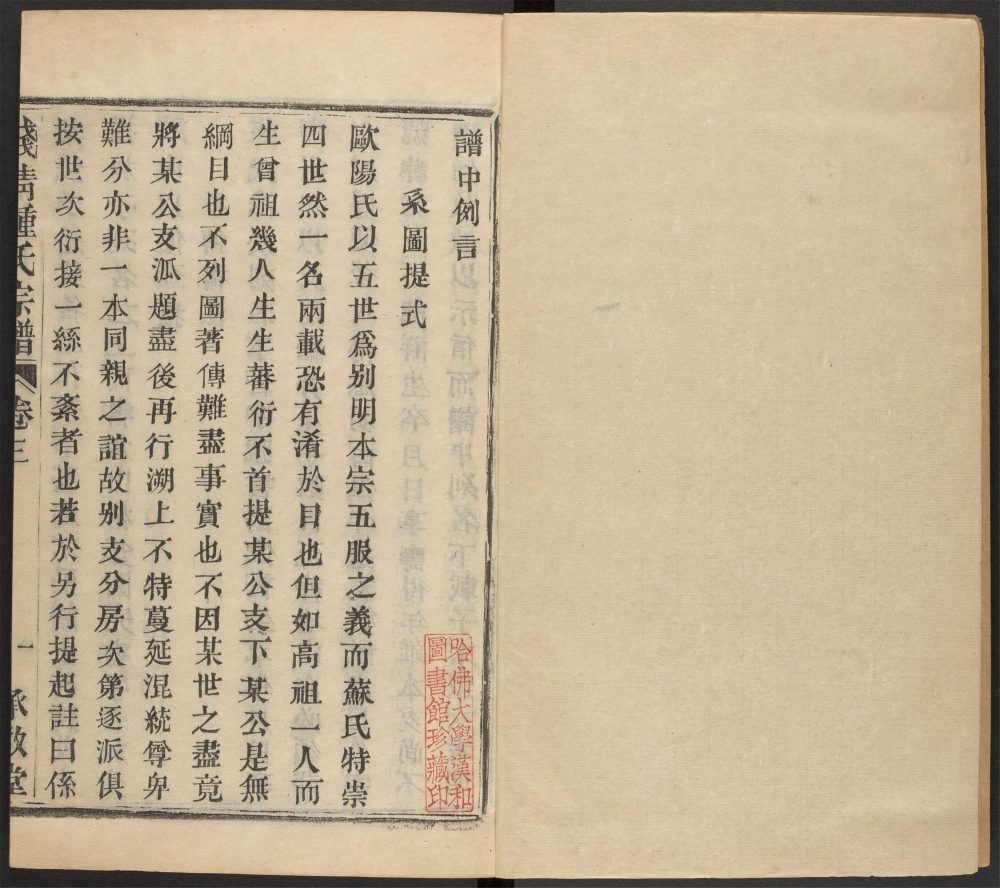 譜中例言
系圖提式
歐陽氏以五世爲别明本宗五服之義而蘇氏特崇
四世然一名兩載恐有淆於目也但如高祖一人而
生曾祖幾人生生蕃衍不首提某公支下某公是無
綱目也不列圖著傳難盡事實也不因某世之盡竟
將某公支派題盡後再行溯上不特蔓延混統尊卑
難分亦非一本同親之誼故别支分房次第逐派俱
按世次衍接一絲不紊者也若於另行提起註曰係
鍾氏宗譜
卷三
一
承敘堂
哈佛大學漢和
圖書館珍藏印